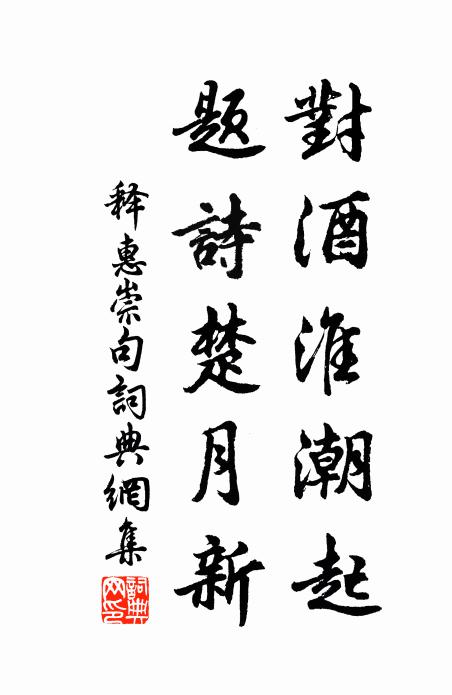 對酒淮潮起
題詩楚月新
释惠崇句詞典網集
詞典网印